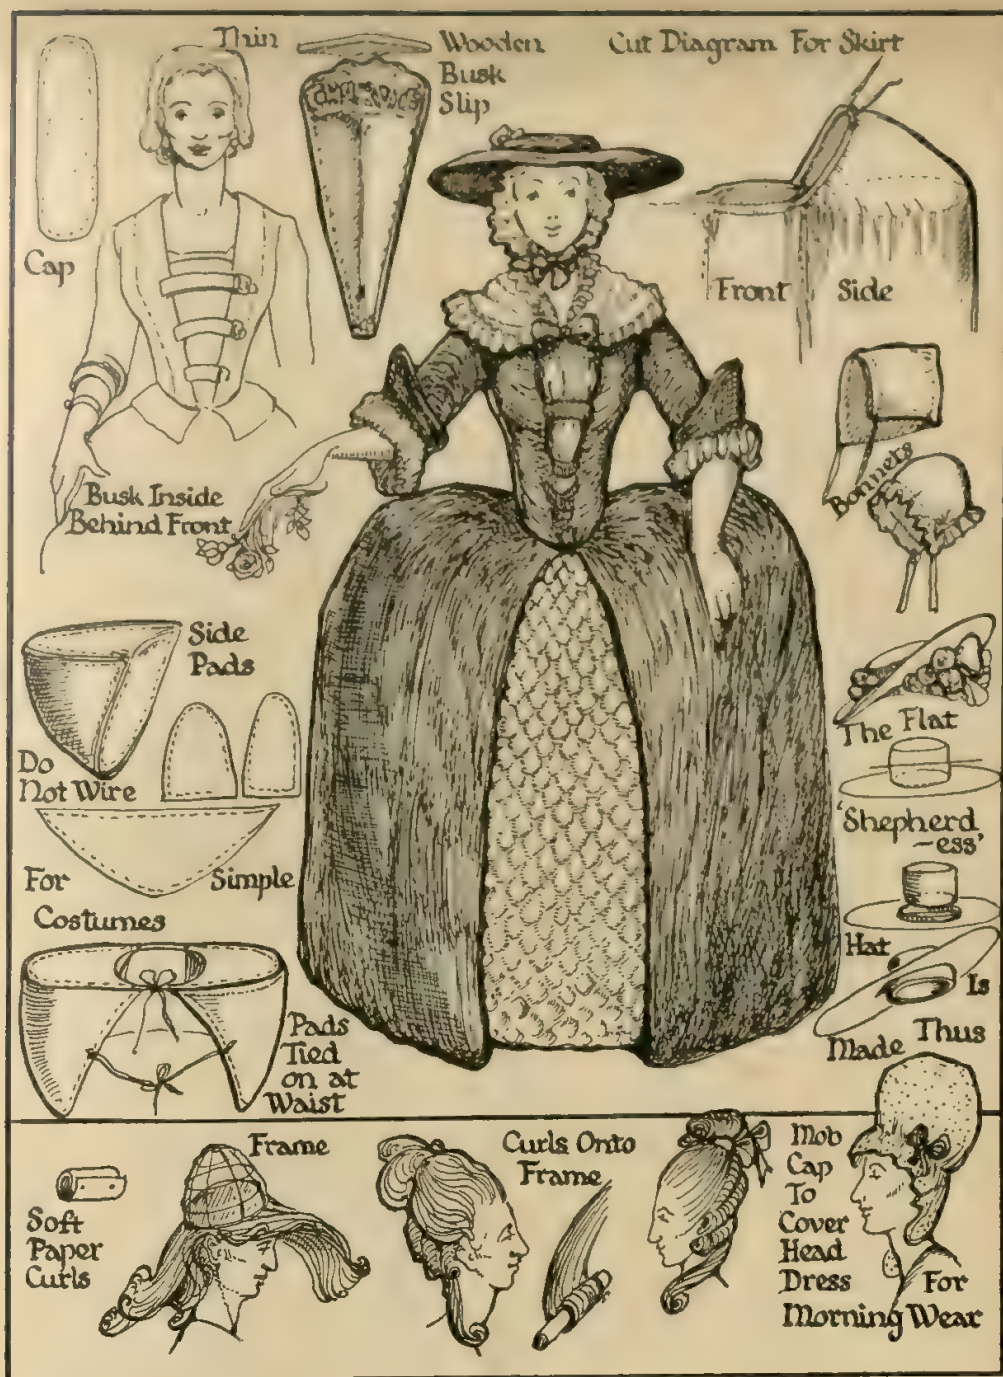 Thin
Wooden
Busk
Slip
Cut Diagram For Skirt
Cap
Front
Side
Busk Inside
Behind Front
Bonnets
Side
Pads
Do
Not Wire
For
Simple
Costumes
Pads
Tied
on at
Waist
The Flat
'Shepherd
-ess'
Hat
Is
Made
Thus
Soft
Paper
Curls
Frame
Curls Onto
Frame
Mob
Cap
To
Cover
Head
Dress
For
Morning Wear